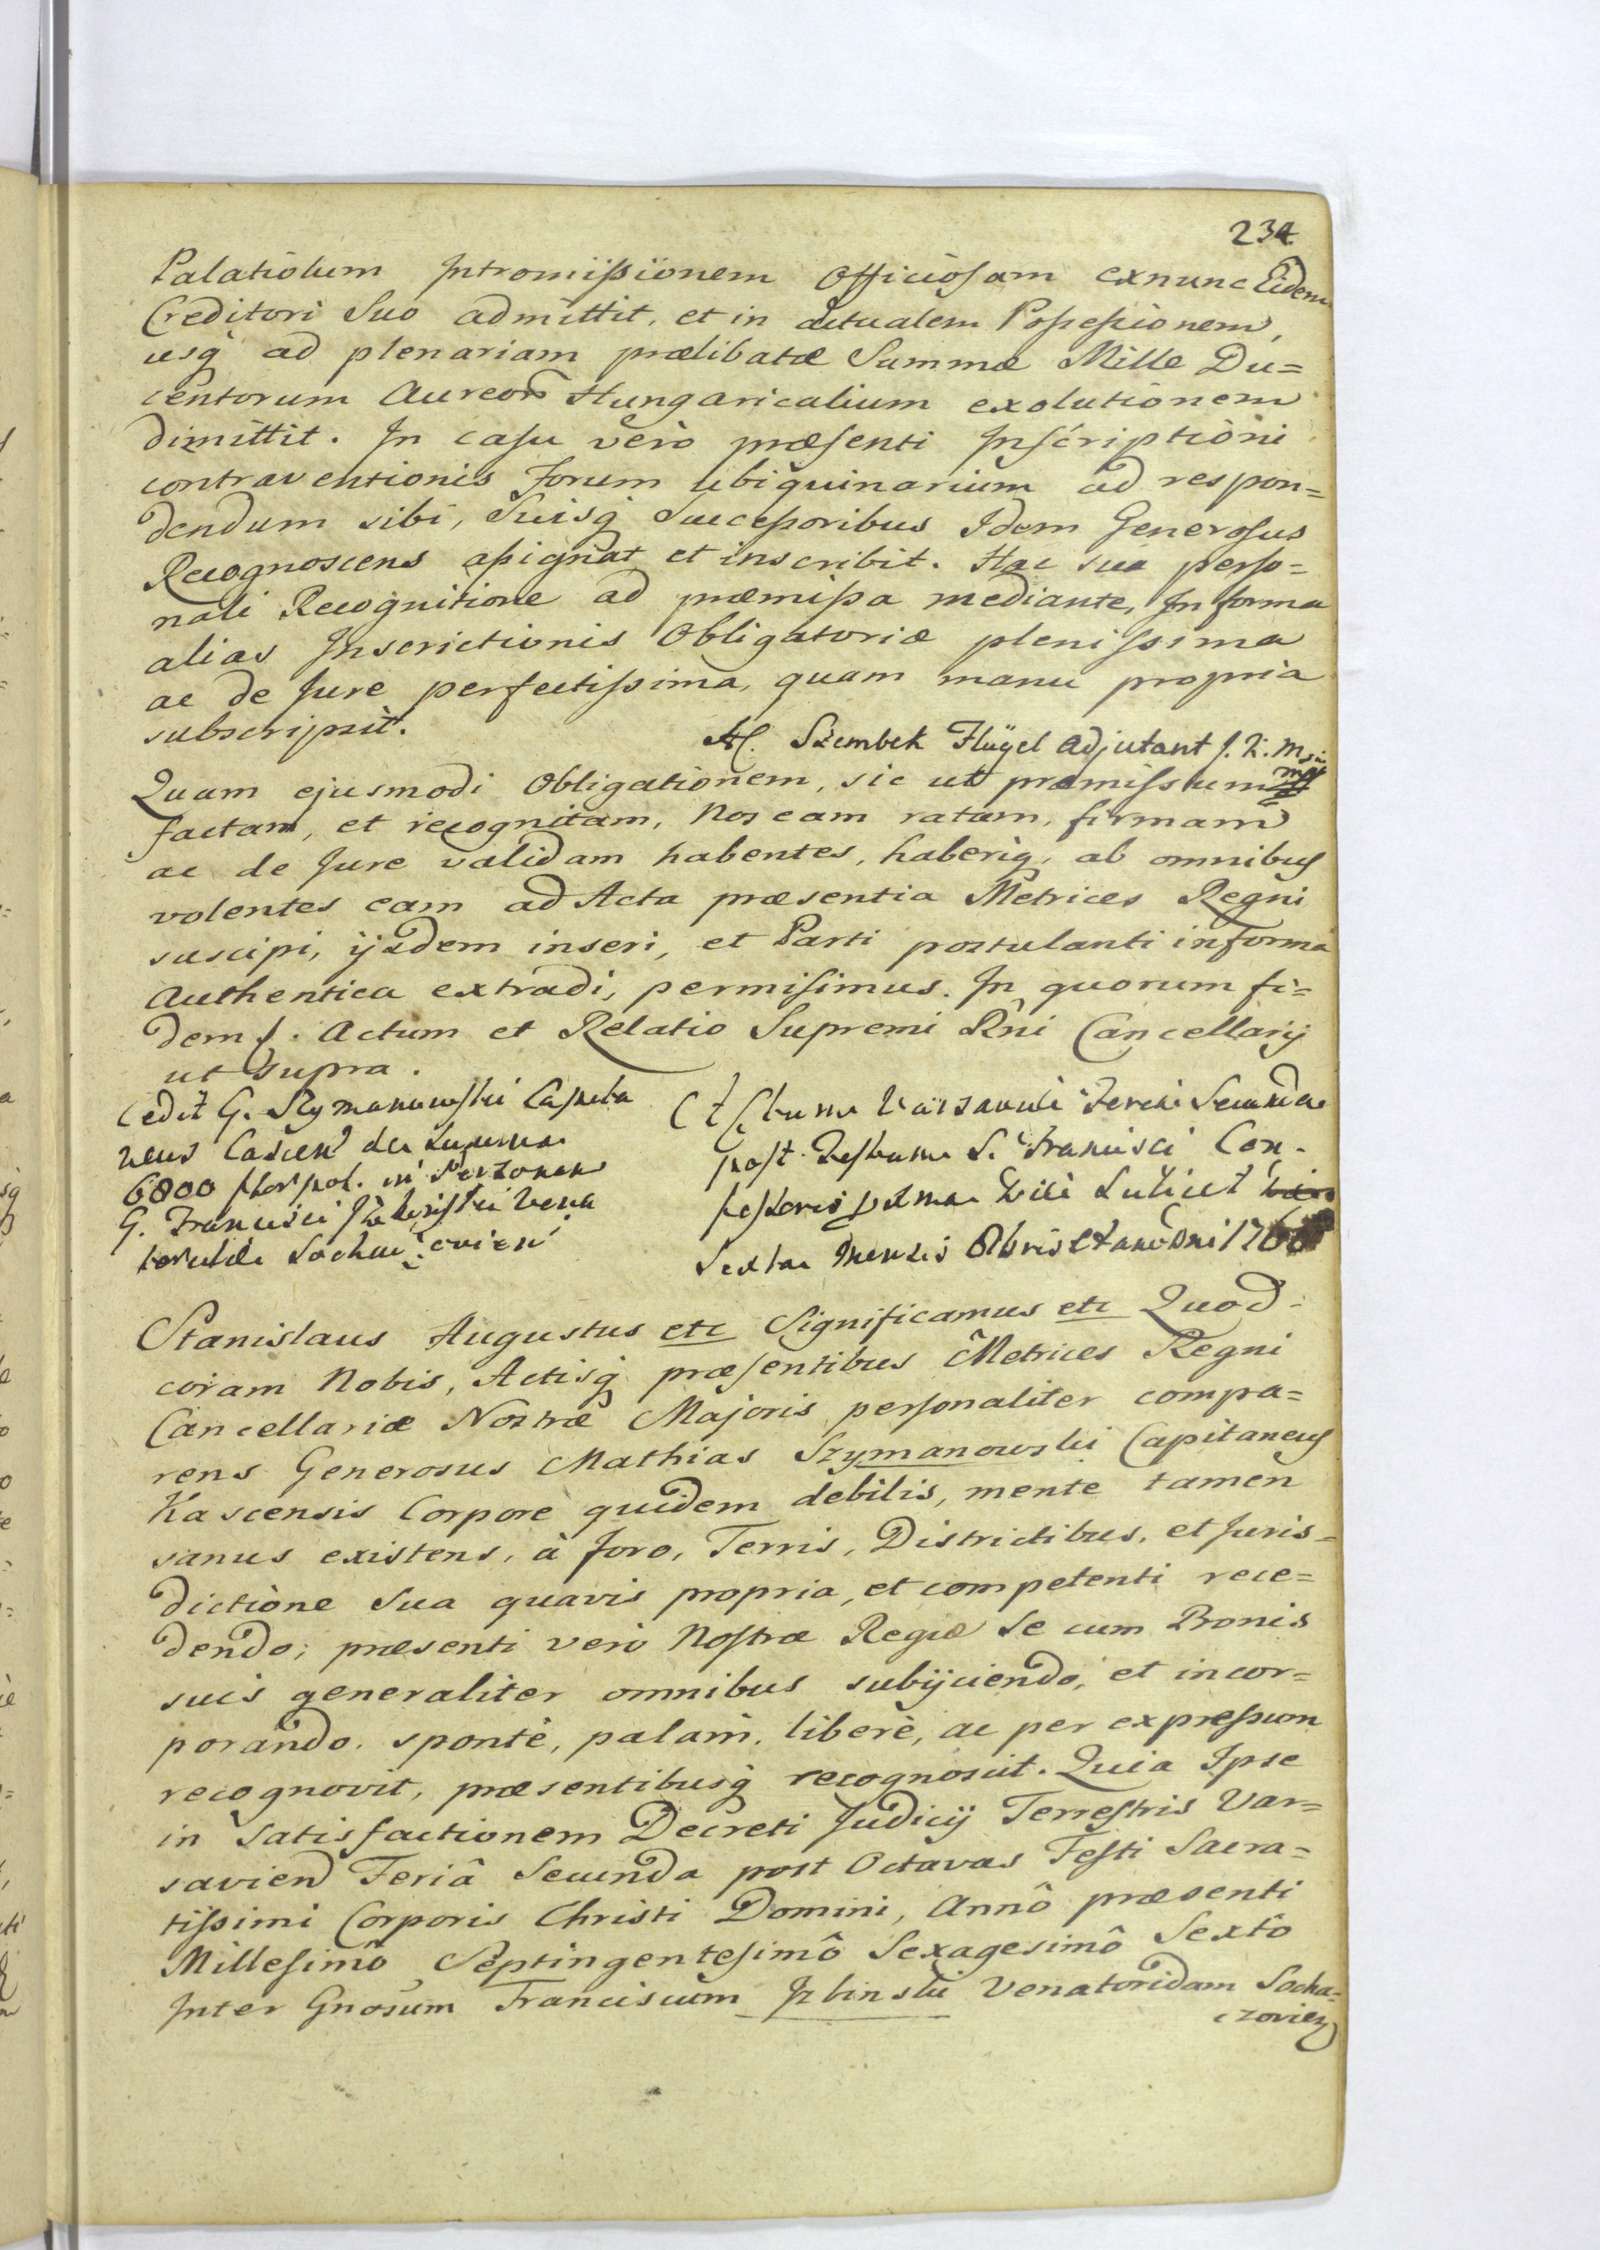 234
Palatiolum Intromissionem Officiosam exnunc Eidem
Creditori Suo admittit, et in actualem Possessionem,
usq́ ad plenariam prælibatæ Summæ Mille Du=
centorum Aureor̃ Hungaricalium exolutionem
dimittit. In casu verò præsenti Inscriptioni
contraventionis Forum ubiquinarium ad respon=
dendum sibi, Suisq́ Successoribus Idem Generosus
Recognoscens assignat et inscribit. Hac sua perso=
nali Recognitione ad præmissa mediante, In forma
alias Inscrictionis Obligatoriæ plenissima
ac de Jure perfectissima, quam manu propria
subscripsit.
Szembek Flügel Adjutant J. K. Msci
mp
Quam ejusmodi Obligationem, sic ut præmissum
factam, et recognitam, Nos eam ratam, firmam
ac de Jure validam habentes, haberiq́, ab omnibus
volentes eam ad Acta præsentia Metrices Regni
suscipi, ijsdem inseri, et Parti postulanti in forma
Authentica extradi, permisimus. In quorum fi=
dem Actum et Relatio Supremi Rñi Cancellarij
ut supra.
Cedit G. Szymanowski Capita
neus Cascen de Summa
6800 flor pol. in Personam
G. Francisci Vena
toridæ Sochaczovien
Actum Varsaviæ Feria Secunda
post Festum S. Francisci Con-
fessoris prma Die Scilicet
Sexta Mensis Obris et anô Dni 176
Stanislaus Augustus etc Significamus etc Quod
coram Nobis, Actisq́ præsentibus Metrices Regni
Cancellariæ Nostræ Majoris personaliter compa=
rens Generosus Mathias Szymanowski Capitaneus
Kascensis Corpore quidem debilis, mente tamen
sanus existens, à foro, Terris, Districtibus, et Juris=
dictione Sua quavis propria, et competenti rece=
dendo; præsenti verò Nostræ Regiæ Se cum Bonis
suis generaliter omnibus subijciendo, et incor=
porando. sponte, palam, liberè, ac per expressum
recognovit, præsentibusq́ recognoscit. Quia Ipse
in Satisfactionem Decreti Judicij Terrestris Var=
savien Feriâ Secunda post Octavas Festi Sacra=
tissimi Corporis Christi Domini, Annô præsenti
Millesimô Septingentesimô Sexagesimô Sextô
Inter Gnosum Franciscum Izbinski Venatoridam Socha=
czovien